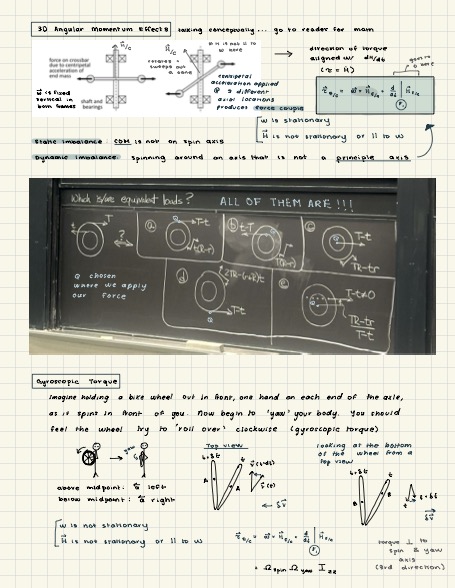 3D Angular Momentum Effects talking conceptually... go to reader for math
force on crossbar
due to centripetal
acceleration of
end mass
shaft and
bearings
ω is fixed
vertical in
both frames
H/c
H is not ∥ to
ω here
creates +
sweeps out
a cone
centripetal
acceleration applied
@ 2 different
axial locations
produces force couple
direction of torque
aligned w/ dH/dt
ω is stationary
H is not stationary or ∥ to ω
Static imbalance: COM is not on spin axis
Dynamic imbalance: Spinning around an axis that is not a principle axis
Which is/are equivalent loads? ALL OF THEM ARE !!!
T
?
a
T-t
t(R-r)
b
t-T
T(R-r)
c
T-t
TR-tr
Q chosen
where we apply
our force
d
T-t
e
T-t≠0
TR-tr
T-t
Gyroscopic Torque
Imagine holding a bike wheel out in front, one hand on each end of the axle,
as it spins in front of you. Now begin to 'yaw' your body. You should
feel the wheel try to 'roll over' clockwise (gyroscopic torque)
yaw
above midpoint: a left
below midpoint: a right
Top view
t+δt
t
A
A
looking at the bottom
of the wheel from a
top view
t+δt
t
B
B
ω is not stationary
H is not stationary or ∥ to ω
= Ω spin Ω yaw I zz
torque ⊥ to
spin & yaw
axis
(3rd direction)